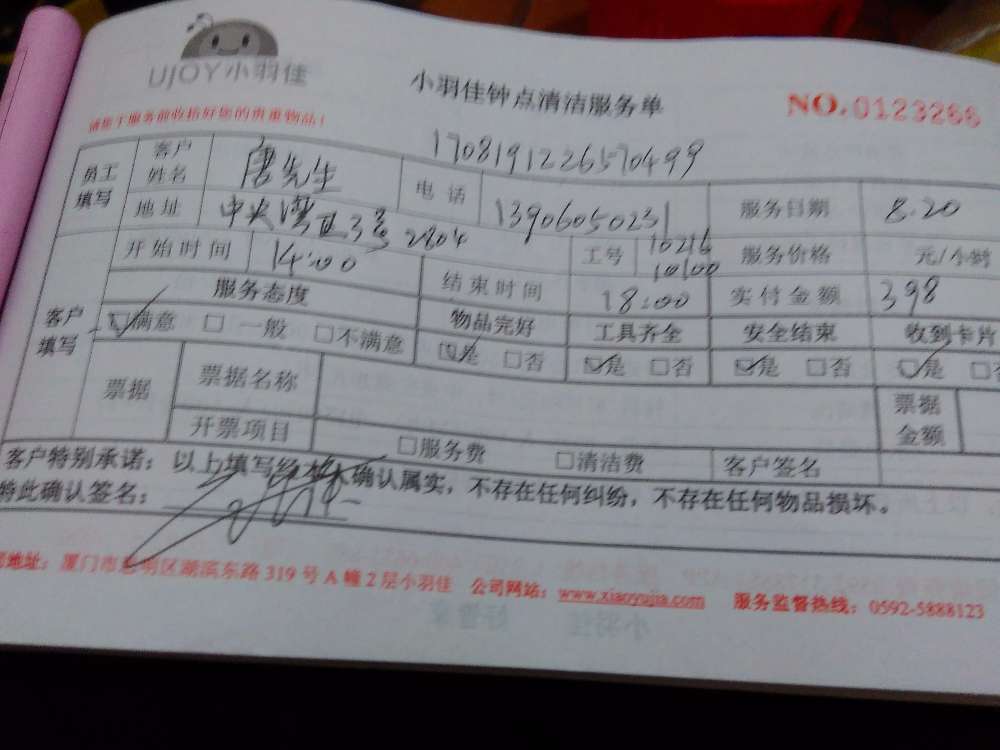 UJOY小羽佳
小羽佳钟点清洁服务单
NO.0123266
请您于服务前收拾好您的贵重物品!
1708191226570499
员工填写 客户姓名 唐先生 电话 13906050231 服务日期 8.20
地址 中央湾区3号2804 工号 10216 10100 服务价格 元/小时
客户填写 开始时间 14:00 结束时间 18:00 实付金额 398
服务态度 物品完好 工具齐全 安全结束 收到卡片
满意 □一般 □不满意 是 □否 是 □否 是 □否 是
票据 票据名称 票据金额
开票项目 □服务费 □清洁费 客户签名
客户特别承诺:以上填写经本人确认属实,不存在任何纠纷,不存在任何物品损坏。
特此确认签名:
地址:厦门市思明区湖滨东路319号A幢2层小羽佳 公司网站:www.xiaoyujia.com 服务监督热线:0592-5888123